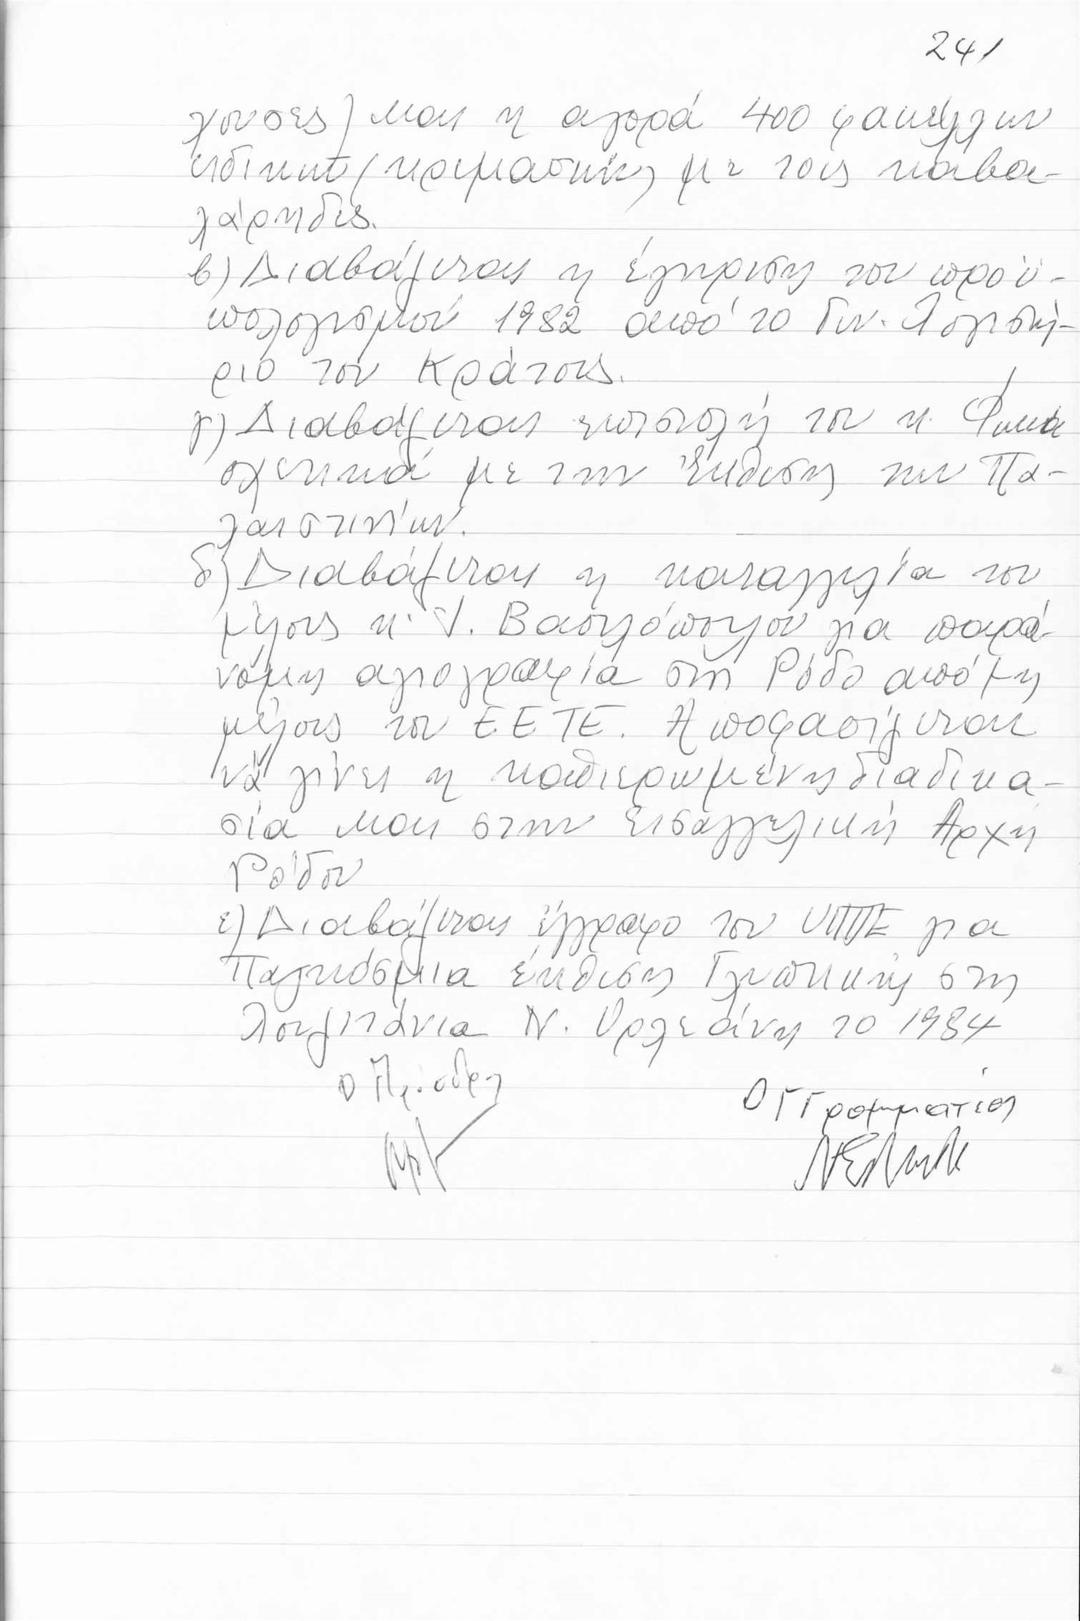 241
χουσες) και η αγορά 400 φακέλλων
ειδικών (κρεμαστών) με τους καβα-
λάρηδες.
β) Διαβάζεται η έγκριση του προϋ-
πολογισμού 1982 από το Γεν. Λογιστή-
ριο του Κράτους.
γ) Διαβάζεται επιστολή του κ. Φωκά
σχετικά με την Έκθεση των Πα-
λαιστινίων.
δ) Διαβάζεται η καταγγελία του
μέλους κ. Ι. Βασιλόπουλου για παρά-
νομη αγιογραφία στη Ρόδο από μη
μέλους του ΕΕΤΕ. Αποφασίζεται
νά γίνει η καθιερωμένη διαδικα-
σία και στην Εισαγγελική Αρχή
Ρόδου
ε) Διαβάζεται έγγραφο του ΥΠΠΕ για
Παγκόσμια έκθεση Γλυπτικής στη
Λουιζιάνια Ν. Ορλεάνη το 1984
Ο Πρόεδρος
Ο Γ Γραμματέας